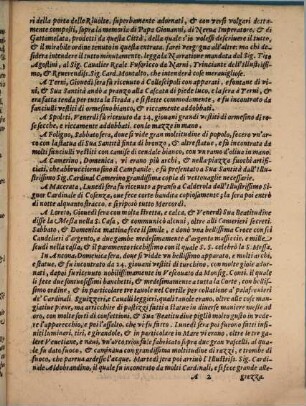 vi della porta delle Rivolte, superbamente adornati, & con versi volgari dottamente
composti, sopra la memoria di Papa Giovanni, di Nerua Imperatore, & di
Gattamelata, prodotti da questa Città; delle quali s'io volessi descriuere il tutto,
& il mirabile ordine tenuto in questa entrata, farei
siderà intendere il tutto minutamente, legga la Narratione mandata dal Sig. Tito
Agostini, al Sig. Caualier Reale Fusoritto da Narni, Trinciante dell'Illustrissimo,
& Reuerendiss. Sig. Card. Montalto, che intenderà cose merauigliose.
A Terni, Giouedì sera fù riceuuto à Collescipoli con apparati, & fontane di vini,
& Sua Santità andò à pranzo alla Cascata di piè de luco, & la sera à Terni, &
era fatta tenda per tutta la strada, e si stette commodamente, e fu incontrato da
fanciulli vestiti di ormesino bianco, & riccamente addobbati.
A Spoleti, Venerdì fù riceuuto da 24. giouani grandi vestiti di ormesino di rose
secche, e riccamente addobbati, con le mazze in mano.
A Foligno, Sabbato sera, doue si vide gran moltitudine di popolo, fecero vn'arco
con la statua di Sua Santità finta di bronzo, & altre statue, e fù incontrato da
molti fanciulli vestiti con camisie di tendale bianco, con vn ramo d'oliua in mano.
A Camerino, Domenica, vi erano più archi, & nella piazza fuochi artifitiati,
che abbrucciorno sino il Campanile, e fù presentato à Sua Santità dall'Illustrissimo
Sig. Cardinal Camerino grandissima copia di vettouaglie necessarie.
A Macerata, Lunedì sera fù riceuuto à pranso à Calderola dall'Illustrissimo Signor
Cardinale di Cosenza, que fece corte bandita copiosamente; la sera poi entrò
di notte alquanto stracco, e serrioposò tutto Mercordì.
A Loreto, Giouedì sera con molta fretta, e caldo, & Venerdì Sua Beatitudine
disse la Messa nella S. Casa, & communicò alcuni, oltre alli Camerieri secreti.
Sabbato, & Domenica mattina fece il simile, e donò vna bellissima Croce con sei
Candelieri d'argento, e due gangie medesimamente d'argento massiccio, e mille
Scudi nella cassa, & il paramento ricchissimo con il quale S. S. celebrò la S. Messa.
In Ancona, Domenica sera, doue si vidde vn bellissimo apparato, e molti archi,
e statue, & fù riceuuto da 24. giouani vestiti di turchino, con molte gioie adornati,
dapoi fu riceuuto nobilissimamente in Vescouato da Monsig. Conti. il quale
li fece due sontuosissimi banchetti, & medesimamente à tutta la Corte, con bellissimo
ordine, & in particolare tre tauole nel Cortile per collatione a' palafrenieri
de' Cardinali. Sguizzeri, & Canali leggieri, quali tauole erano, oltre alle cose mangiatiue
proue, ma arricchite di pasticci fatti à statue in diuerse maniere notate de
oro, con molte sorti di confettioni, & Sua Beatitudine pigliò molto gusto in vedere
l'apparecchio, e poi l'assalto, che vi fu fatto. Lunedì sera poi furno fatti infiniti
luminari, tiri, e girandole, & in particolare in Mare vicinno, oltre le tre galere
Venetiane, e naui, vn'artiositissolo fabricato sopra due gran vaselli, il quale
fu dato fuoco, & campaua con grandissima moltitudine di razzi, e trombe di
fuoco, che pareua ardesse l'acqua. Martedì sera poi arriuò l'Illustriss. Sig. Cardinale
Aldobrandino, il quale fu incontrato da molti Cardinali, e si fece grande allegrezza
A 2 grezza